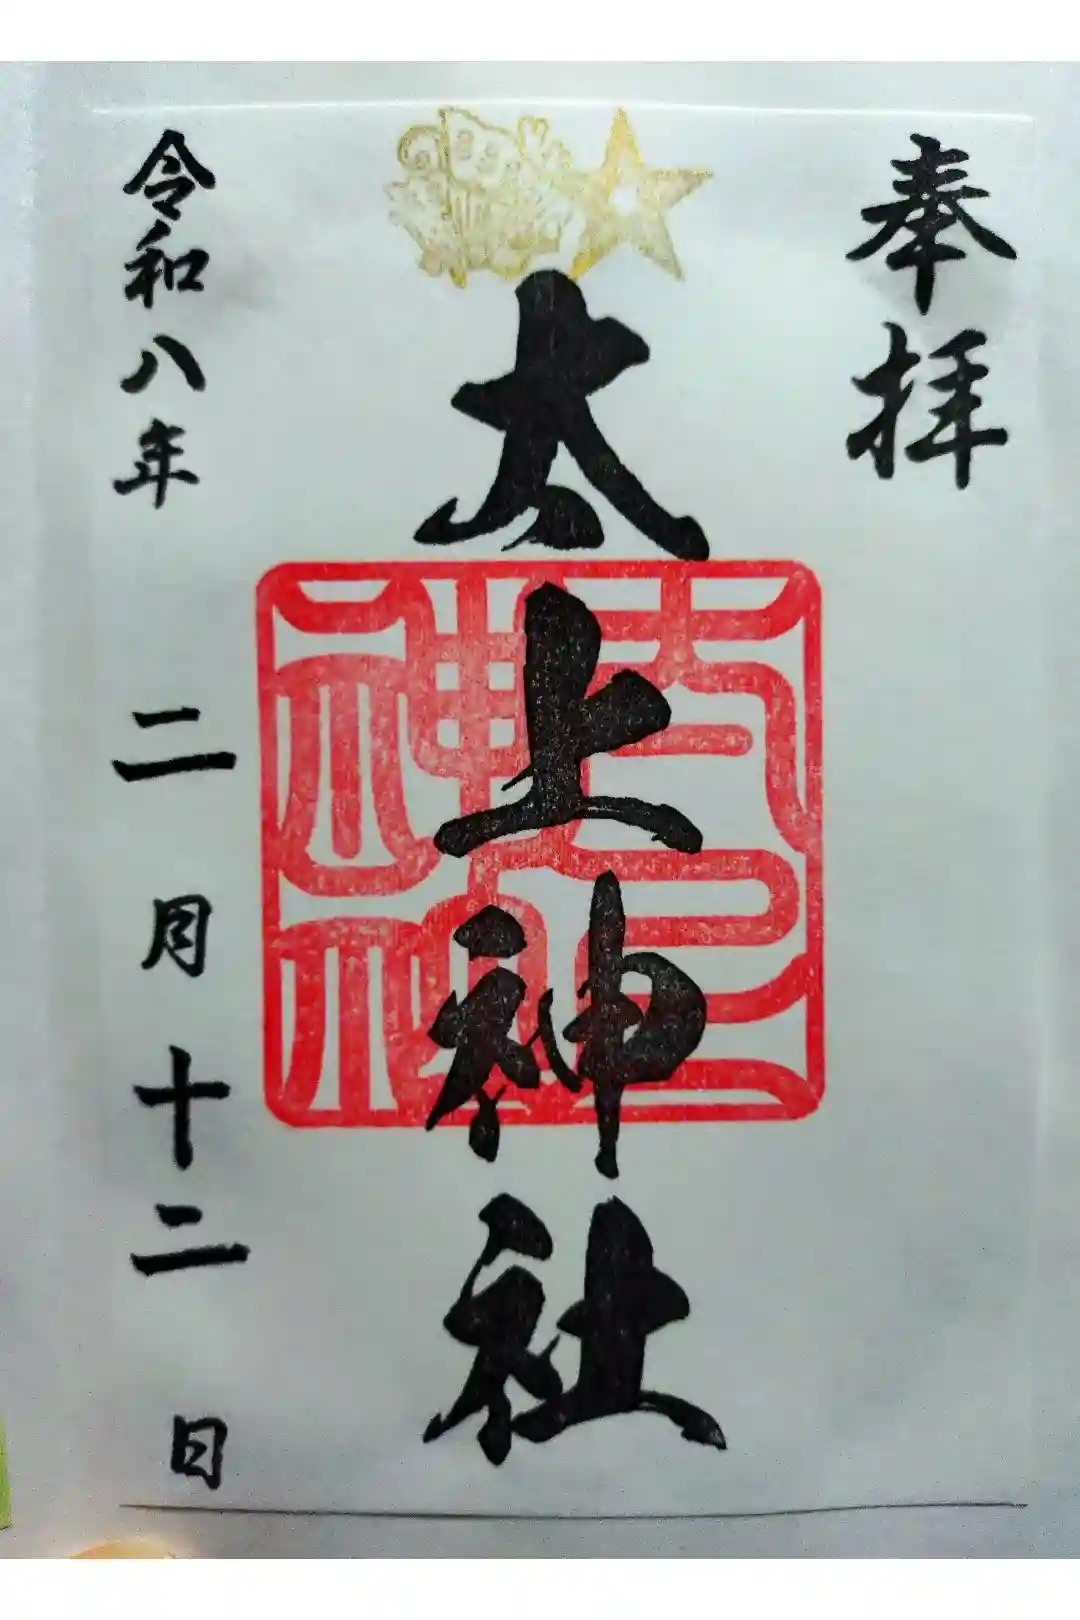 奉拝
太上神社
太上神社
令和八年 二月十二日